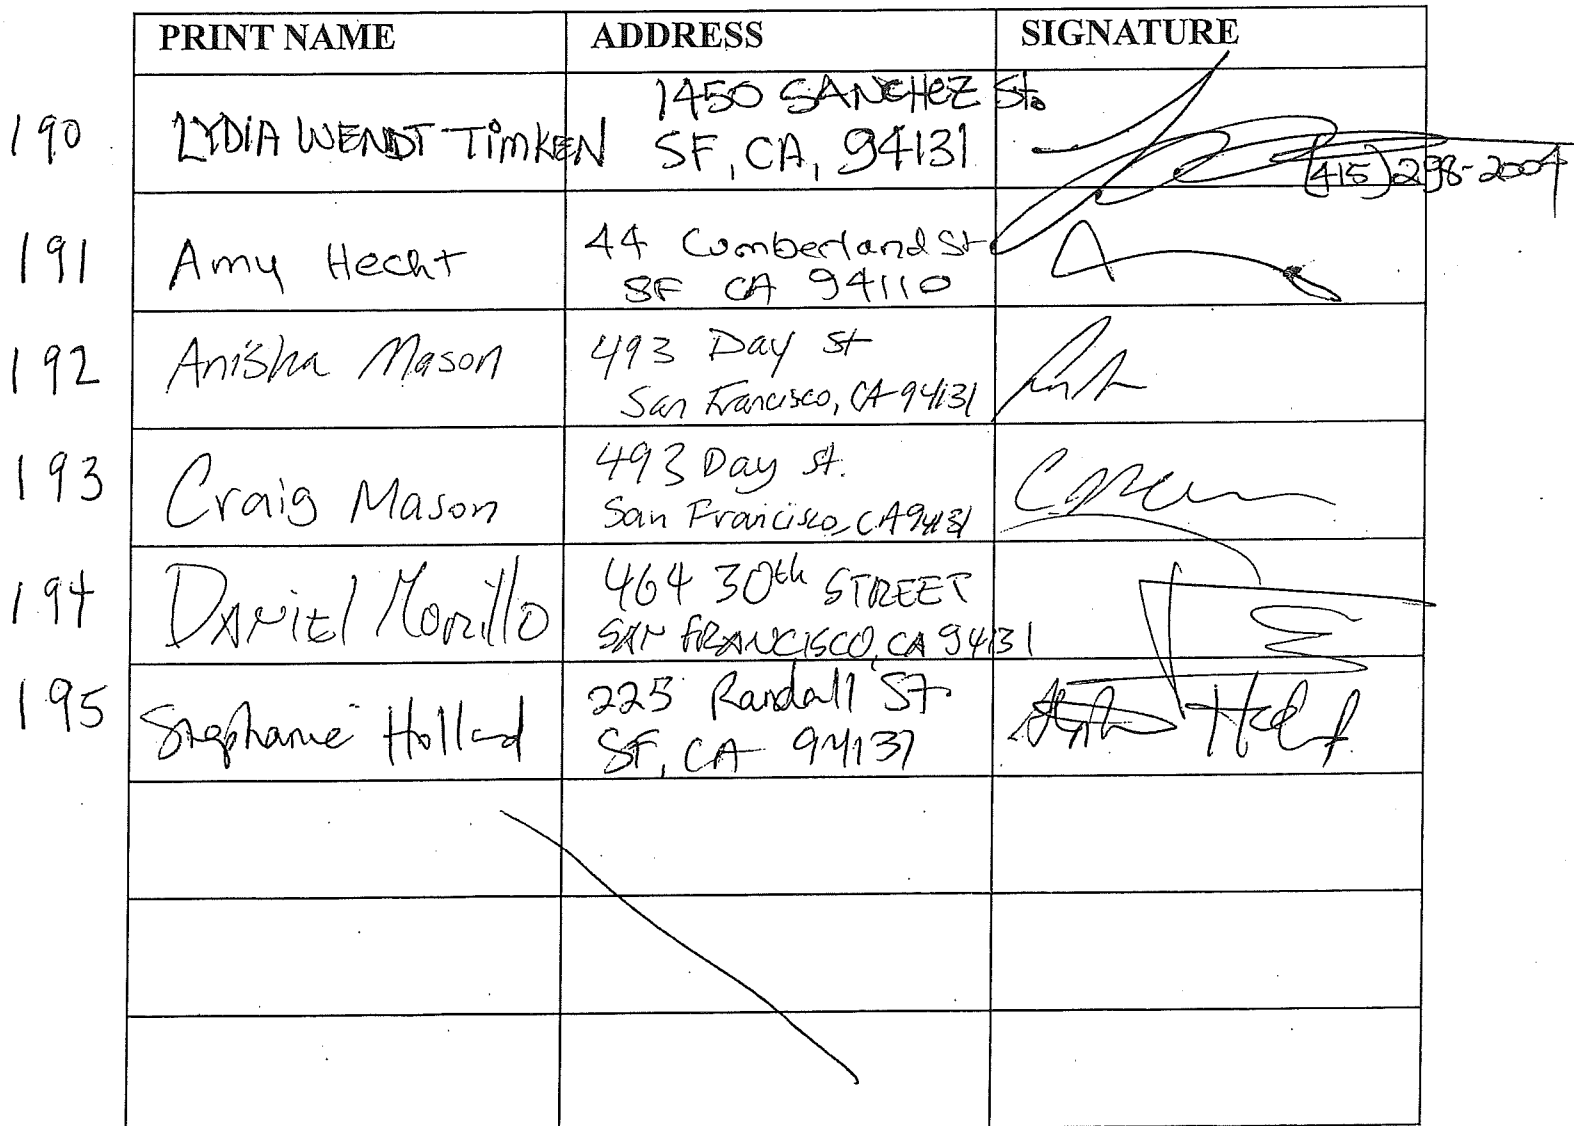 PRINT NAME ADDRESS SIGNATURE
190 LYDIA WENDT TIMKEN 1450 SANCHEZ St.
SF, CA, 94131
(415) 298-2004
191 Amy Hecht 44 Cumberland St
SF CA 94110
192 Anisha Mason 493 Day St
San Francisco, CA 94131
193 Craig Mason 493 Day St.
San Francisco, CA 94131
194 DANIEL Morillo 464 30th STREET
SAN FRANCISCO, CA 94131
195 Stephanie Holland 225 Randall St
SF, CA 94131